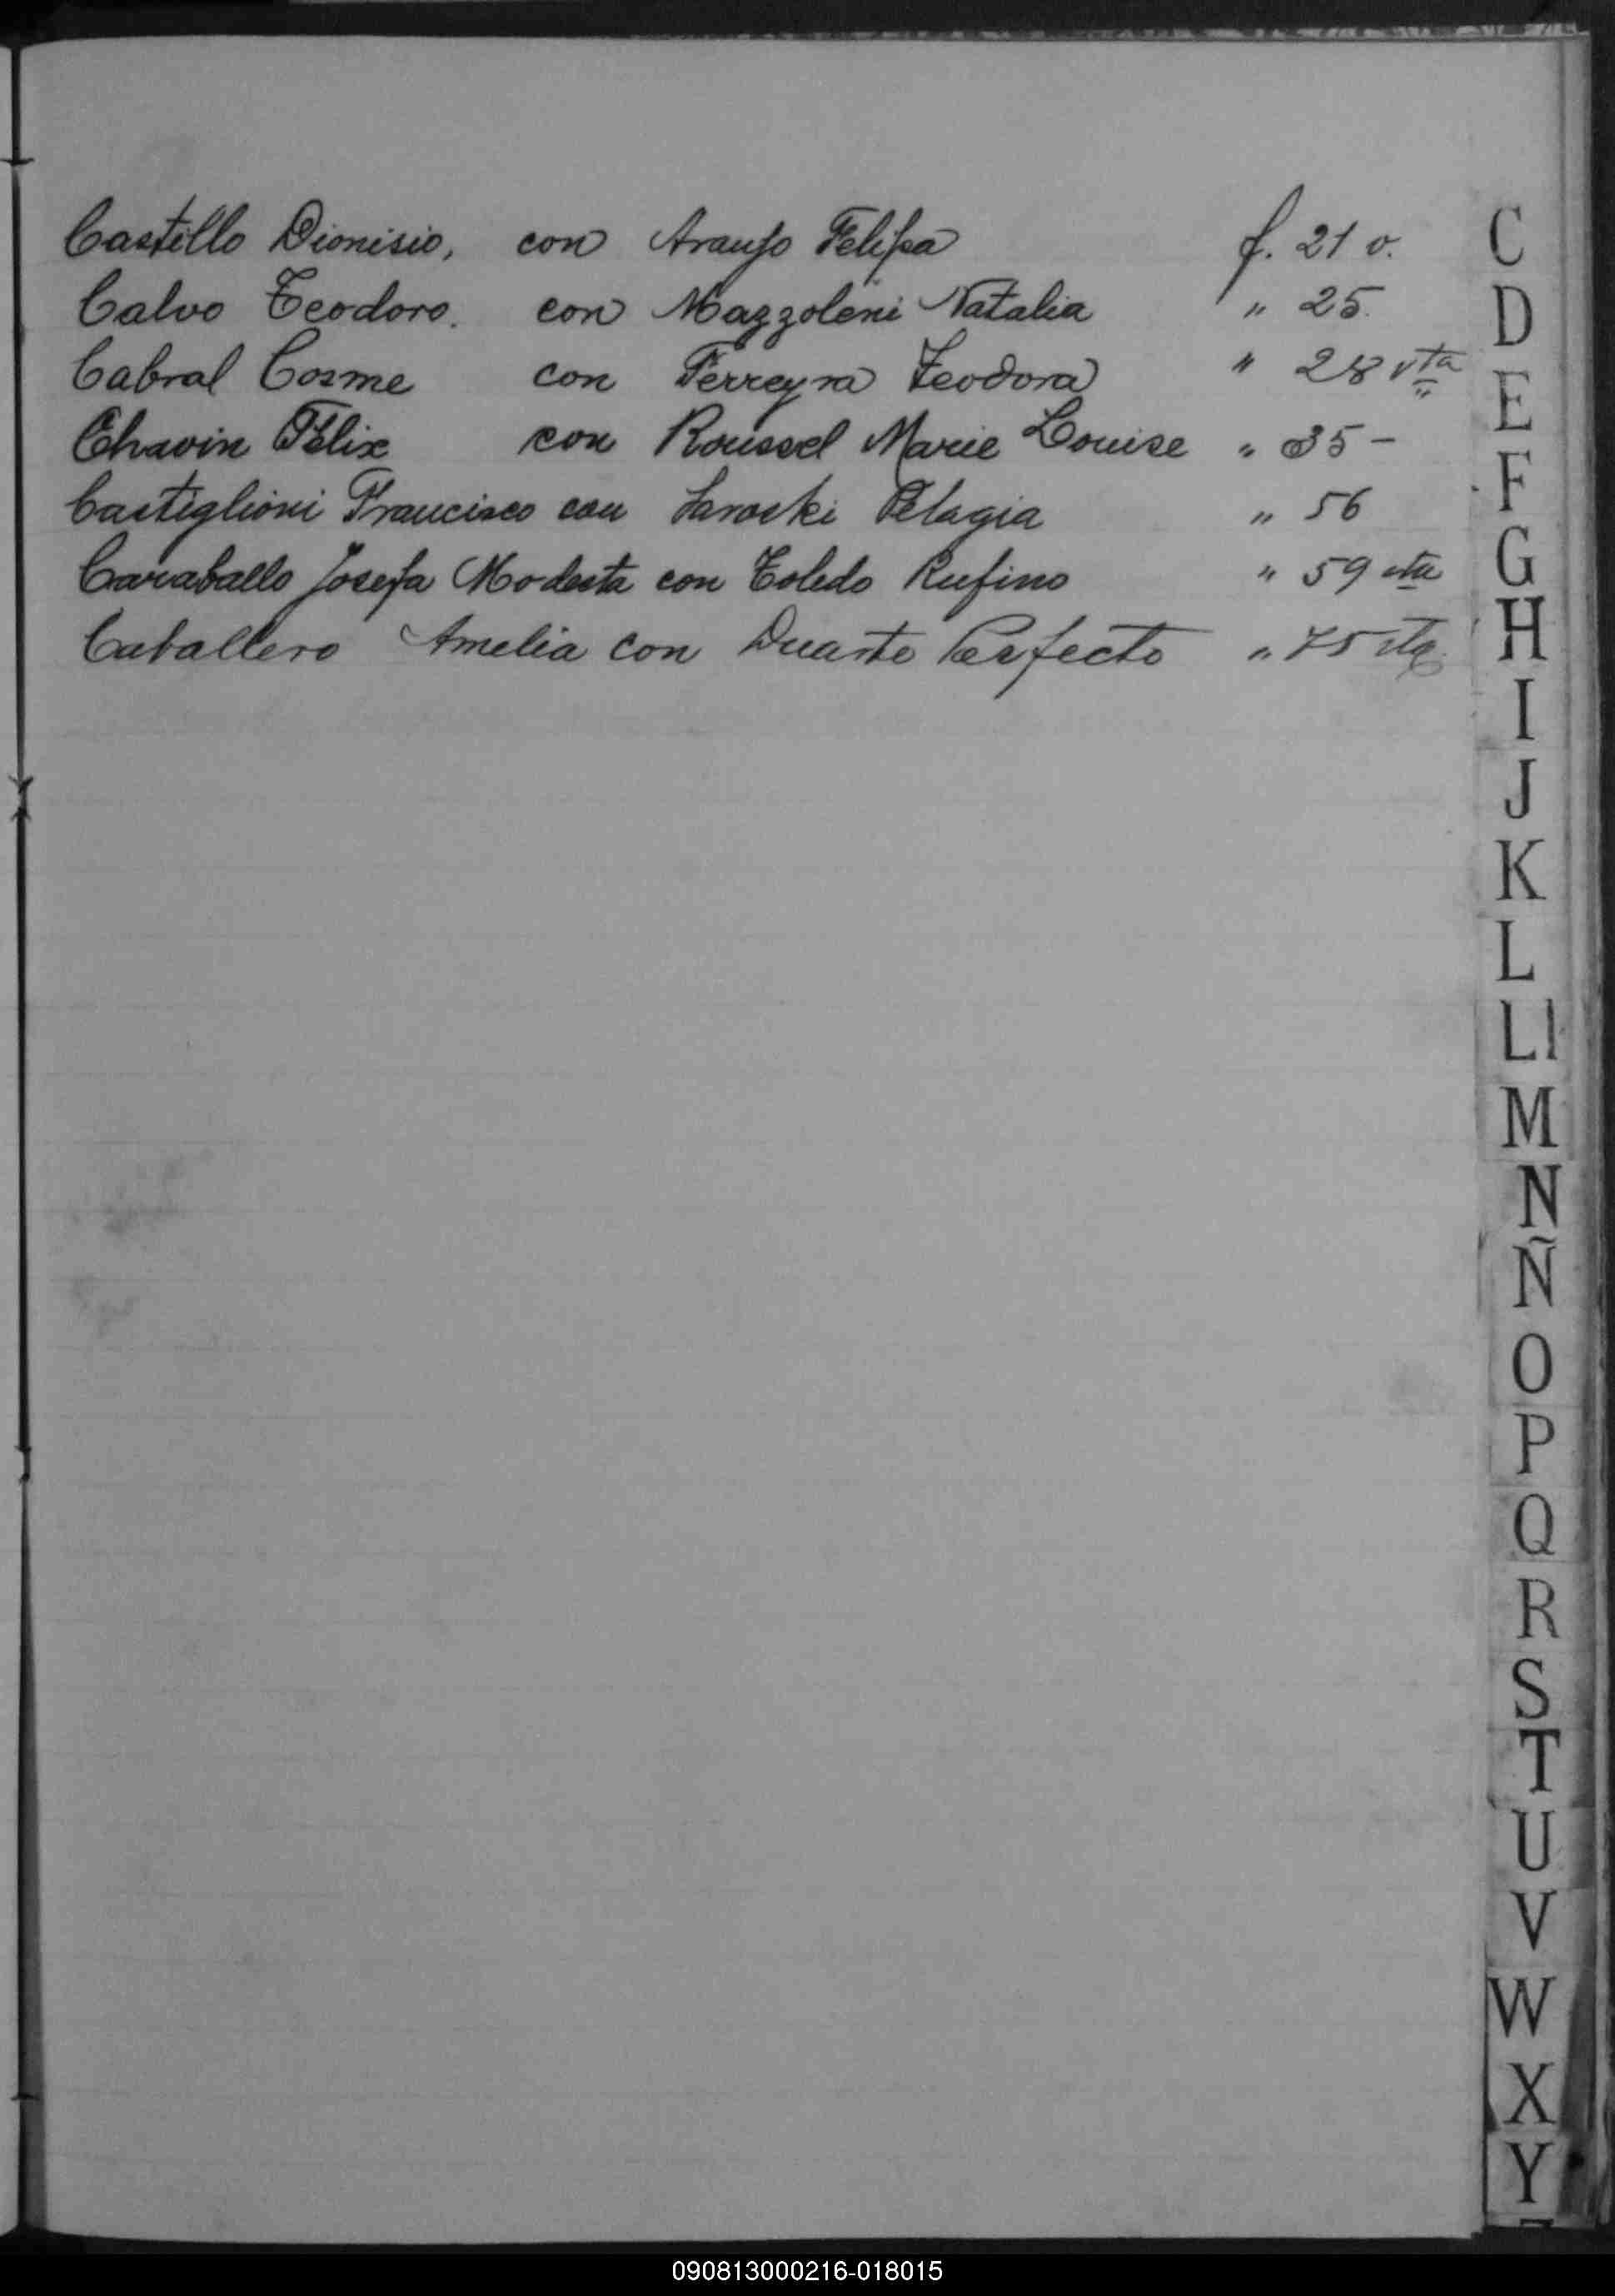 Castillo Dionisio, con Araujo Felipa f. 21 v.
Calvo Teodoro. con Mazzoleni Natalia " 25.
Cabral Cosme con Ferreyra Teodora " 28 vta
Chavin Félix con Roussel Marie Louise " 35 -
Castiglioni Francisco con Pelagia " 56
Caraballo Josefa Modesta con Toledo Rufino " 59 vta
Caballero Amelia con Duarte Perfecto " 75 vta
C
D
E
F
G
H
I
J
K
L
Ll
M
N
Ñ
O
P
Q
R
S
T
U
V
W
X
Y
090813000216-018015